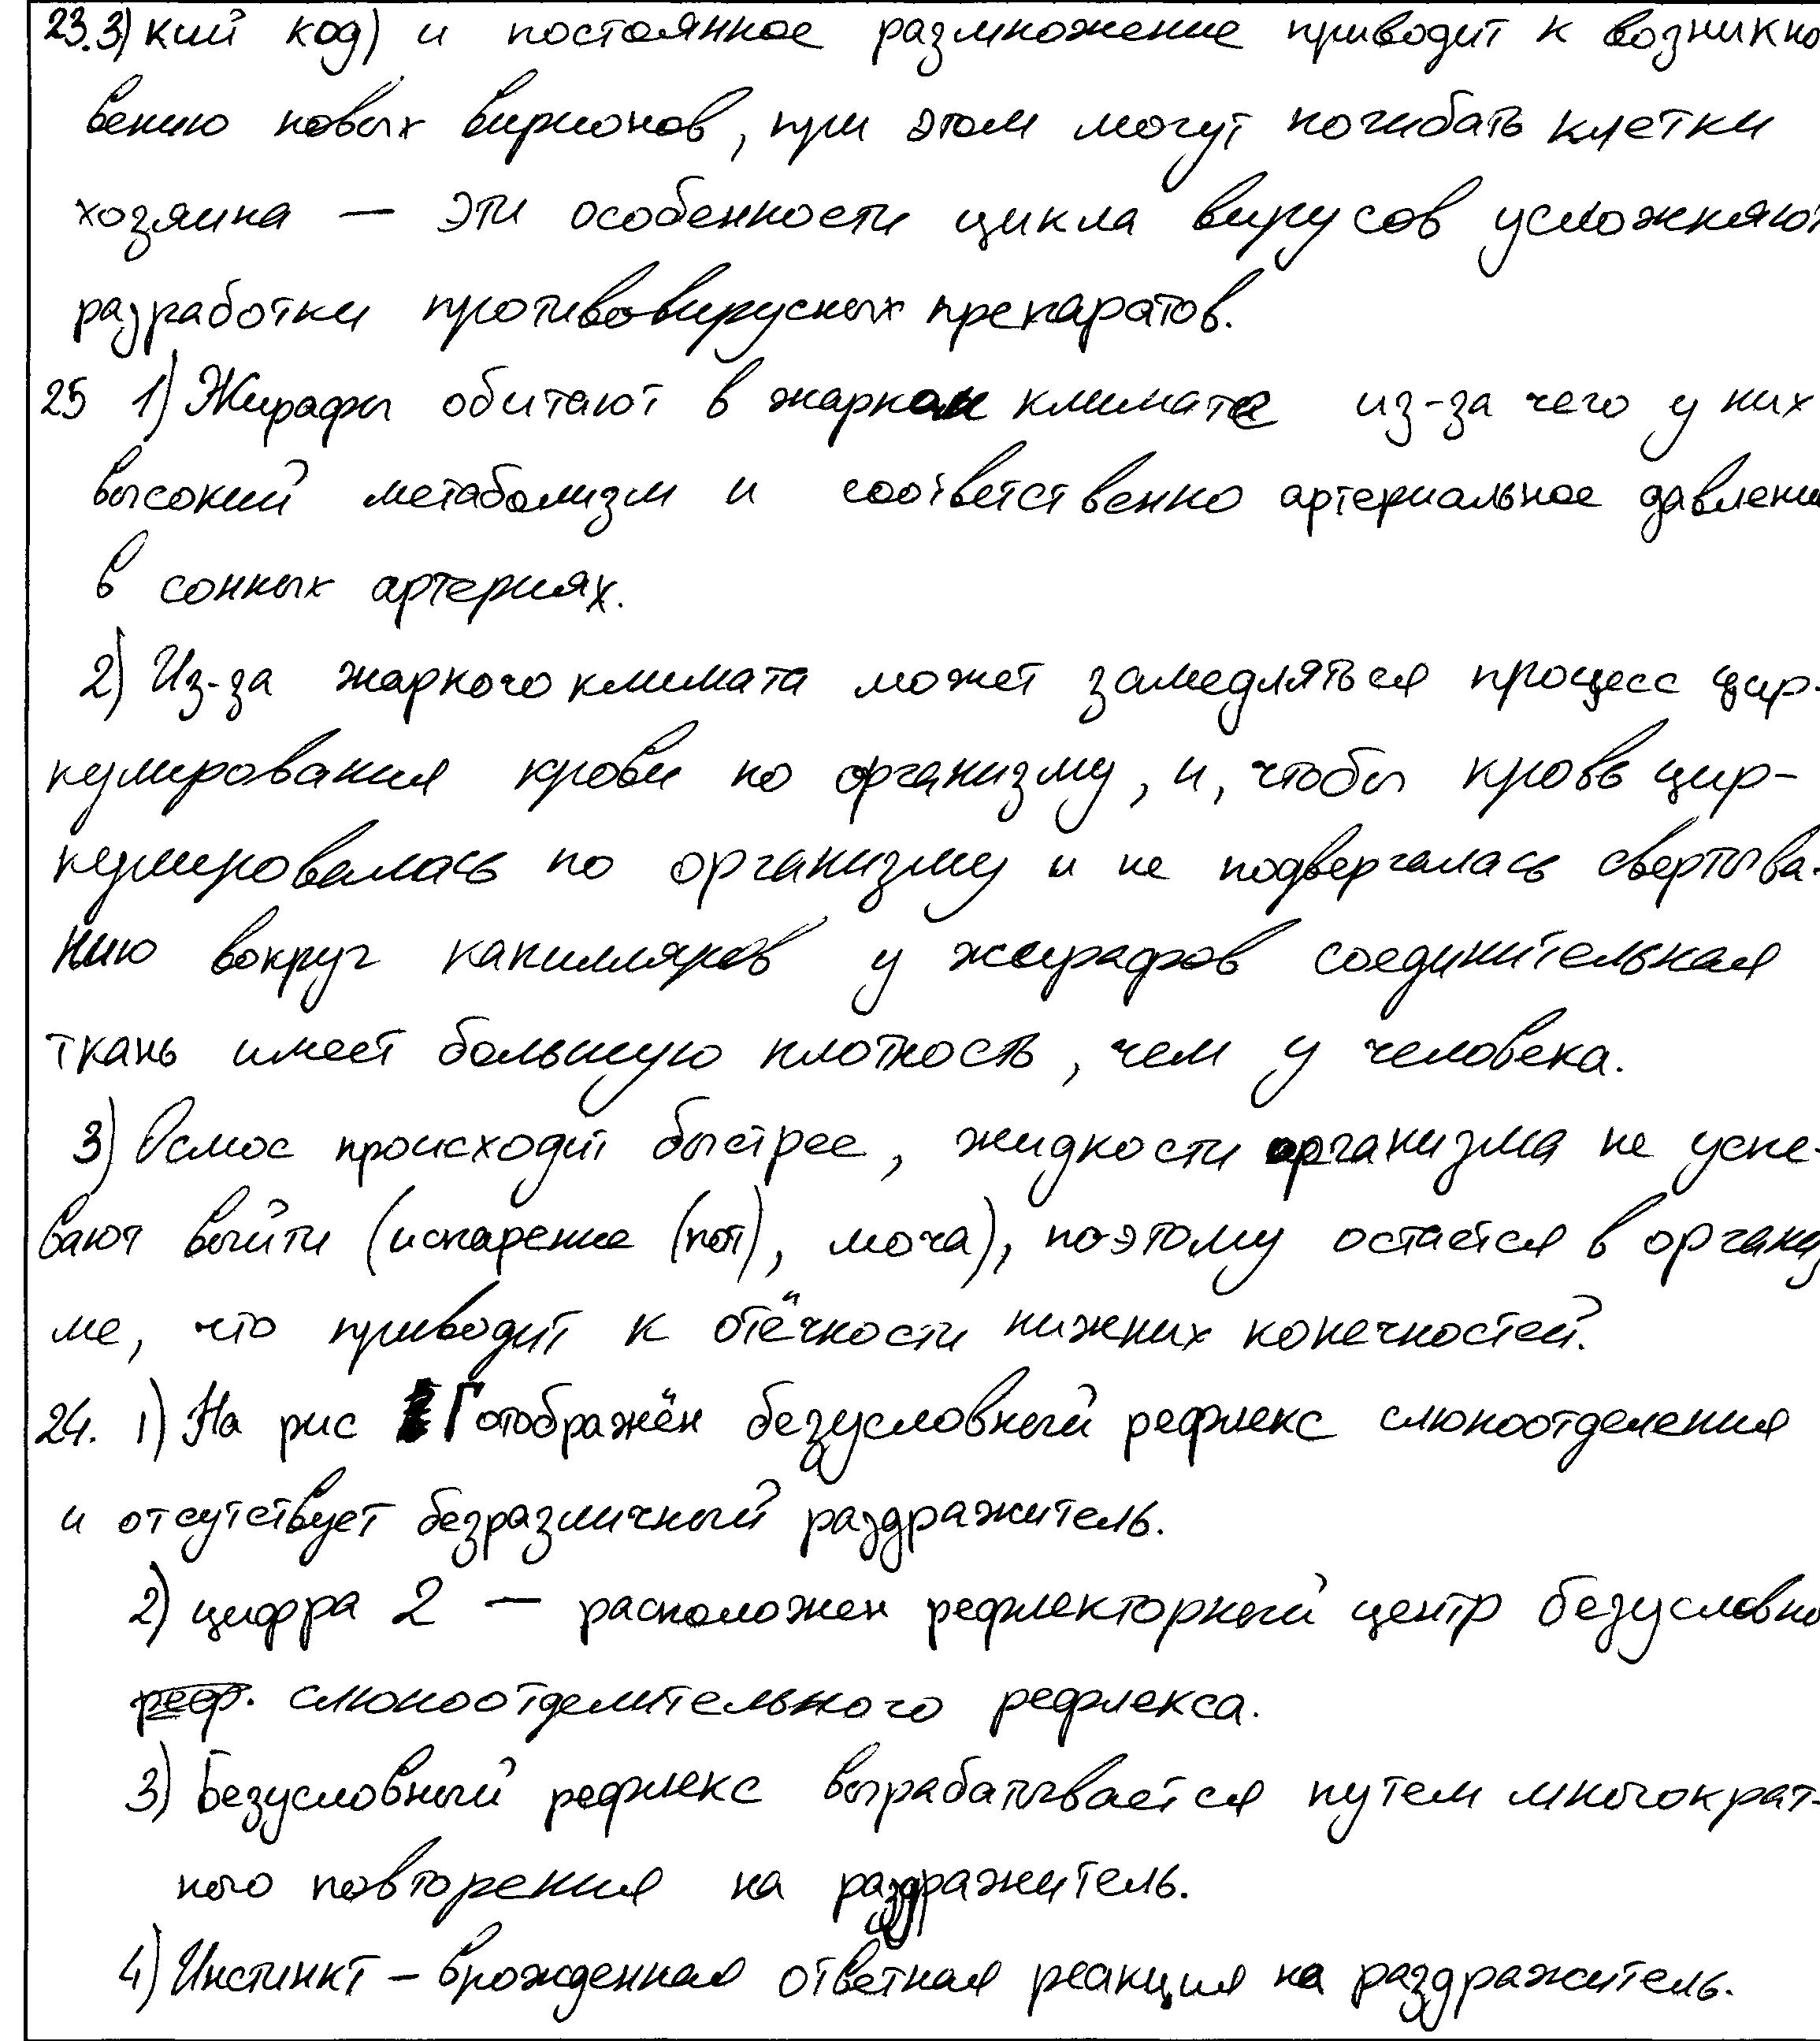 23.3) кий код) и постоянное размножение приводит к возникно
вению новых вирионов, при этом могут погибать клетки
хозяина — эти особенности цикла вирусов усложняют
разработки противовирусных препаратов.
25 1) Жирафы обитают в жарком климате из-за чего у них
высокий метаболизм и соответственно артериальное давлени
в сонных артериях.
2) Из-за жаркого климата может замедляться процесс цир-
кулирования крови по организму, и, чтобы кровь цир-
кулировалась по организму и не подвергалась свертыва-
нию вокруг капилляров у жирафов соединительная
ткань имеет большую плотность, чем у человека.
3) Осмос происходит быстрее, жидкости организма не успе-
вают выйти (испарение (пот), моча), поэтому остается в организ
ме, что приводит к отёчности нижних конечностей.
24. 1) На рис Г отображён безусловный рефлекс слюноотделения
и отсутствует безразличный раздражитель.
2) цифра 2 — расположен рефлекторный центр безусловно
реф. слюноотделительного рефлекса.
3) Безусловный рефлекс вырабатывается путем многократ-
ного повторения на раздражитель.
4) Инстинкт – врожденная ответная реакция на раздражитель.